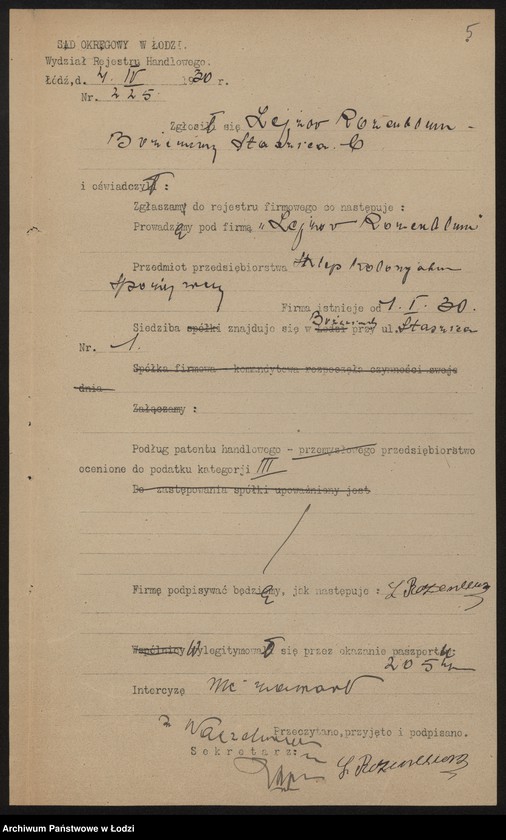 5
SĄD OKRĘGOWY W ŁODZI.
Wydział Rejestru Handlowego.
Łódź, d. 4. IV 1930 r.
Nr. 225
Zgłosił się Lejzor Rozenblum
Brzeziny Staszica
i oświadczył :
Zgłaszamy do rejestru firmowego co następuje :
Prowadzę pod firmą "Lejzor Rozenblum"
Przedmiot przedsiębiorstwa sklep kolonjalno
spożywczy
Firma istnieje od 1. I. 30.
Siedziba spółki znajduje się w Łodzi Brzezinach przy ul. Staszica
Nr. 1.
Spółka firmowa - komandytowa rozpoczęła czynności swoje
dnia
Załączamy :
Podług patentu handlowego - przemysłowego przedsiębiorstwo
ocenione do podatku kategorji III
Do zastępowania spółki upoważniony jest
Firmę podpisywać będę, jak następuje : L. Rozenblum
Wspólnicy Wylegitymował się przez okazanie paszportu
205
Intercyzę nie zawarł
Przeczytano, przyjęto i podpisano.
Sekretarz:
L. Rozenblum
Archiwum Państwowe w Łodzi